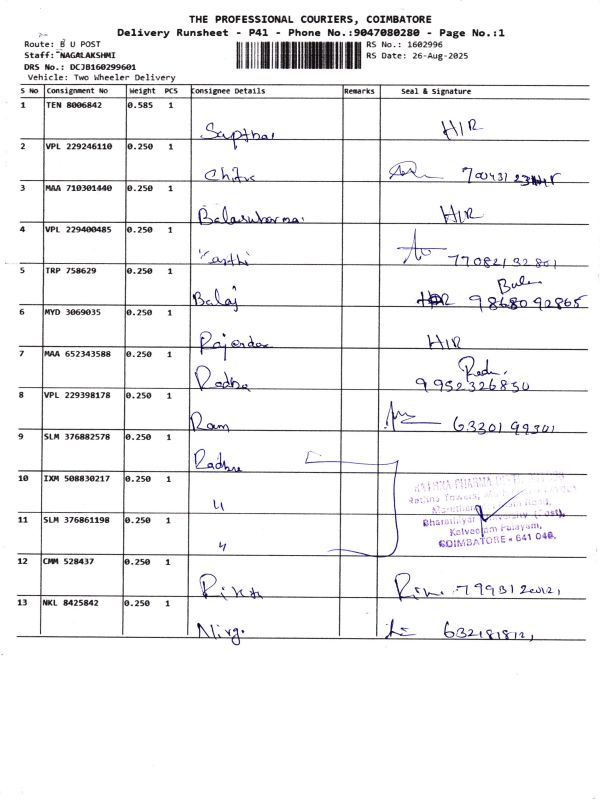 THE PROFESSIONAL COURIERS, COIMBATORE
Delivery Runsheet - P41 - Phone No.:9047080280 - Page No.:1
Route: B U POST
RS No.: 1602996
Staff: NAGALAKSHMI
RS Date: 26-Aug-2025
DRS No.: DCJB160299601
Vehicle: Two Wheeler Delivery
S No Consignment No Weight PCS Consignee Details Remarks Seal & Signature
1 TEN 8006842 0.585 1
HIR
2 VPL 229246110 0.250 1
3 MAA 710301440 0.250 1
HIR
4 VPL 229400485 0.250 1
5 TRP 758629 0.250 1
Balaj 9868092865
6 MYD 3069035 0.250 1
HIR
7 MAA 652343588 0.250 1
Radha 9952326850
8 VPL 229398178 0.250 1
Ram 6330199301
9 SLM 376882578 0.250 1
Radha
10 IXM 508830217 0.250 1
11 SLM 376861198 0.250 1
Bharathiyar University (Post),
Kalveeram Palayam,
COIMBATORE - 641 046.
12 CMM 528437 0.250 1
13 NKL 8425842 0.250 1